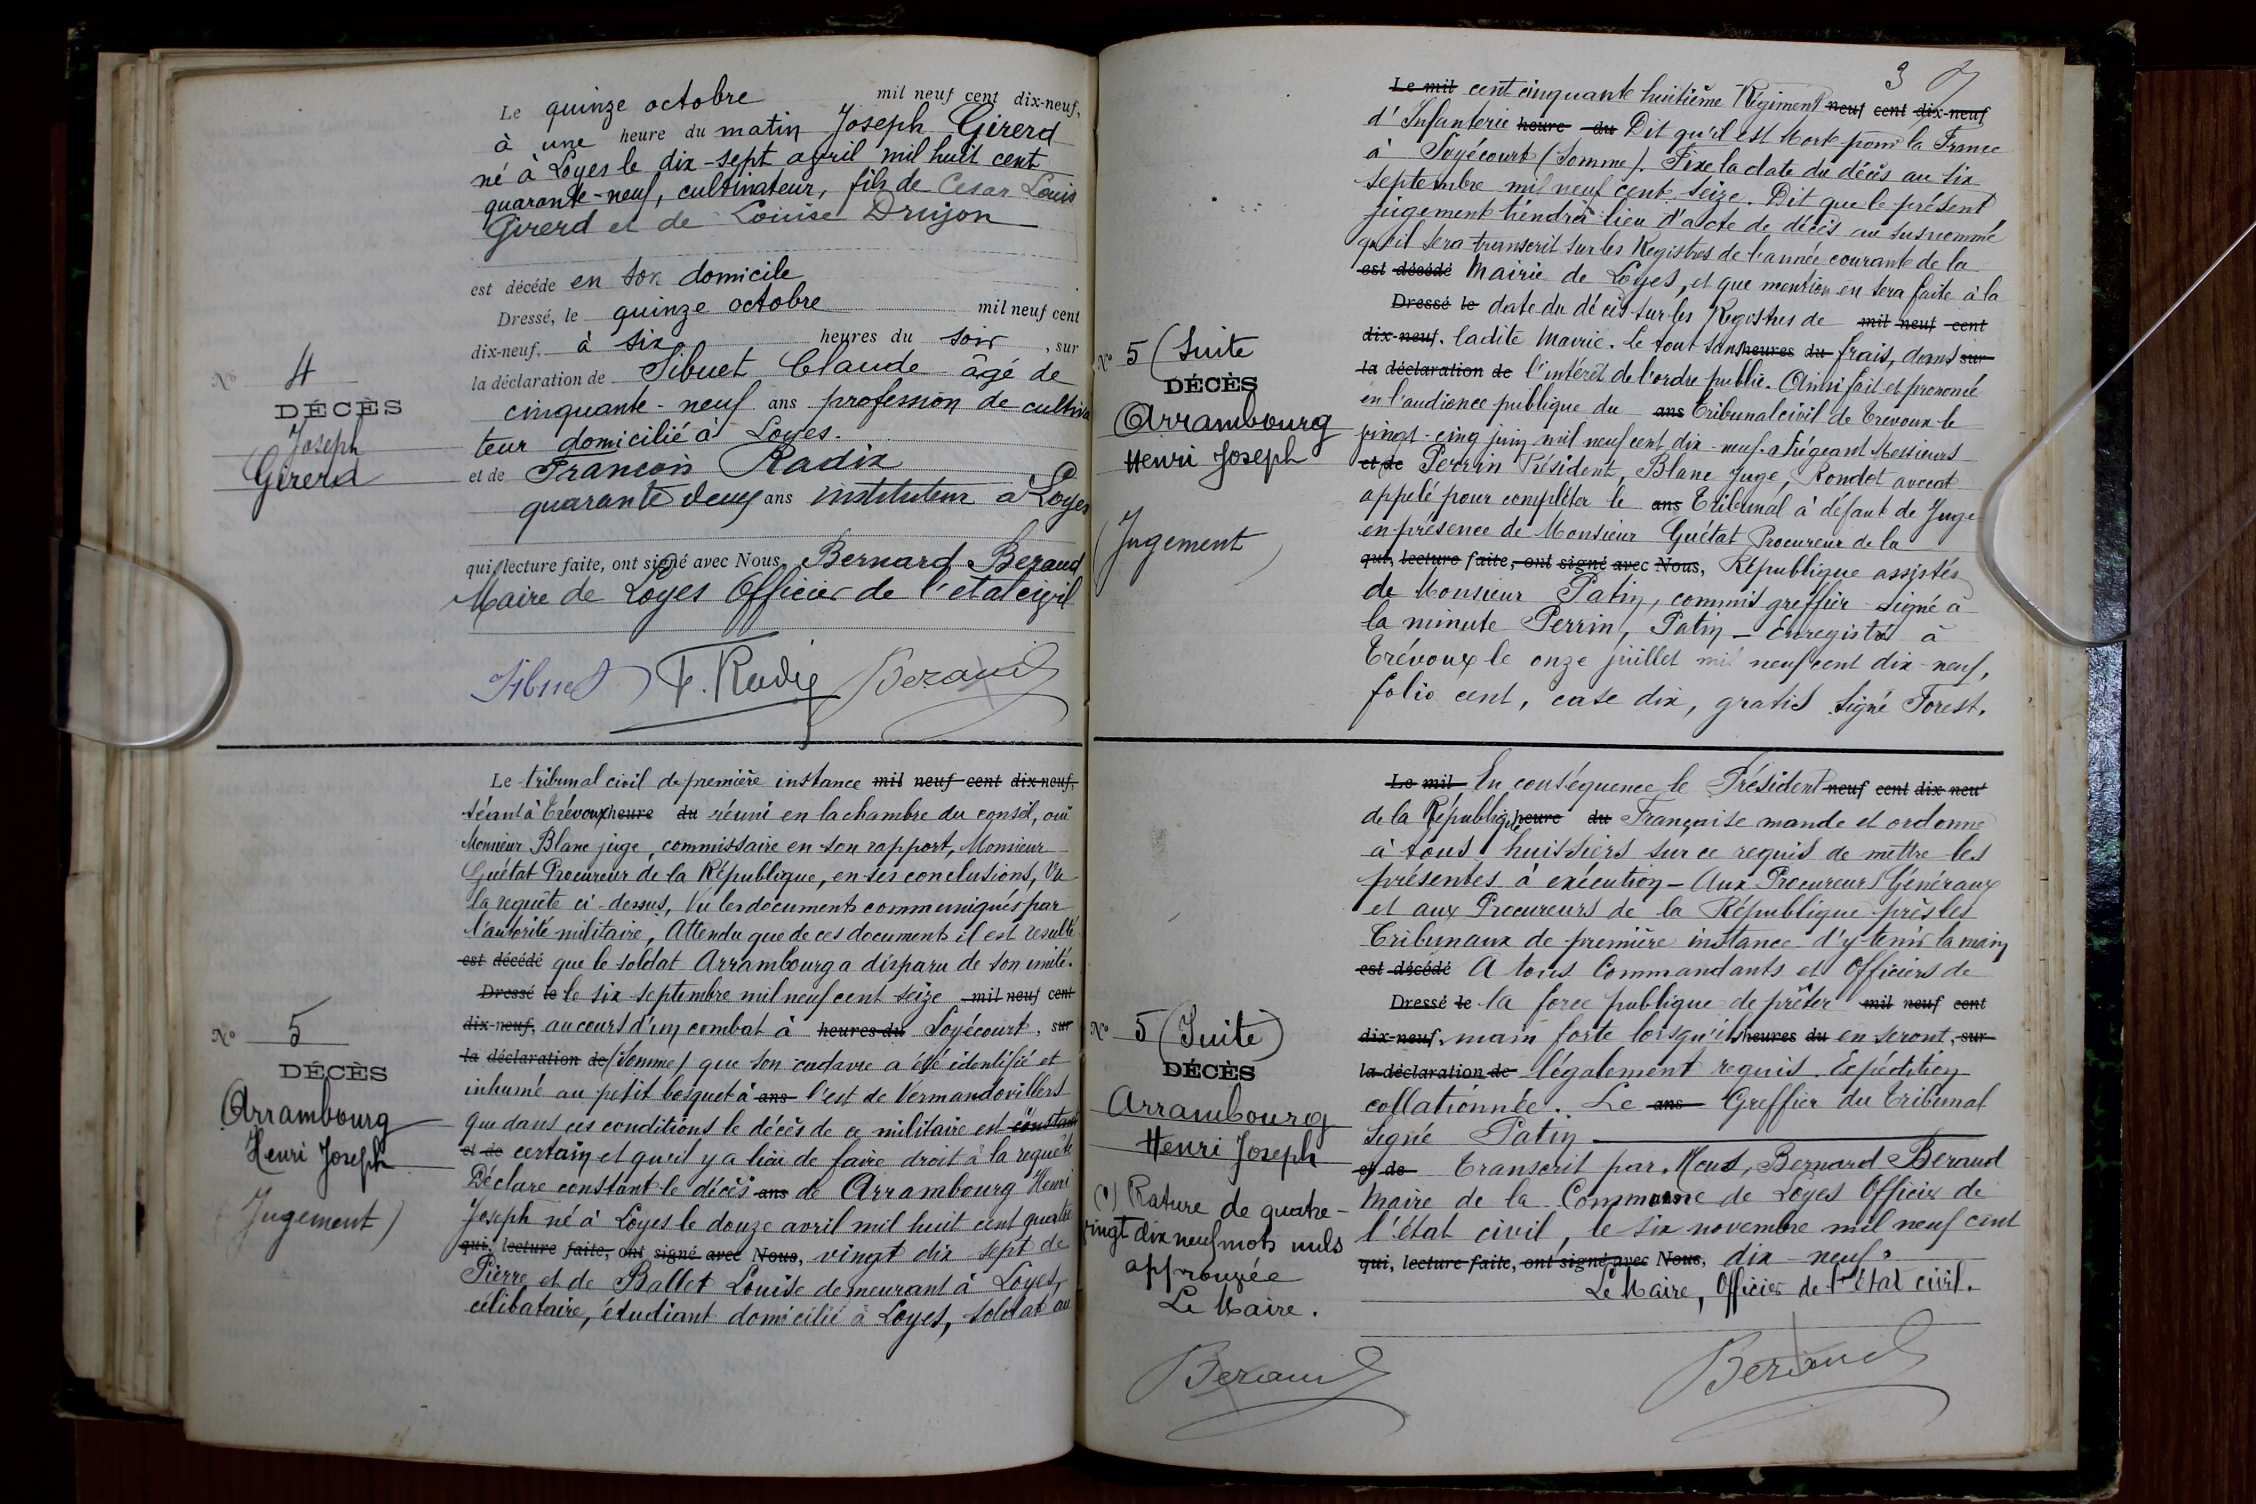 Le quinze octobre mil neuf cent dix-neuf,
à une heure du matin Joseph Girerd
né à Loyes le dix-sept avril mil huit cent
quarante-neuf, cultivateur, fils de Cesar Louis
Girerd et de Louise Drujon
est décédé en son domicile
Dressé, le quinze octobre mil neuf cent
dix-neuf, à six heures du soir, sur
N° 4
la déclaration de Sibuet Claude âgé de
DÉCÈS
cinquante-neuf ans profession de cultiva
Joseph
teur domicilié à Loyes.
Girerd
et de François Radix
quarante deux ans instituteur à Loyes
qui, lecture faite, ont signé avec Nous, Bernard Beraud
Maire de Loyes Officier de l'état civil
Sibuet F. Radix Beraud
Le tribunal civil de première instance mil neuf cent dix-neuf,
séant à Trévoux heure du réuni en la chambre du conseil, ouï
Monsieur Blanc juge, commissaire en son rapport, Monsieur
Guétat Procureur de la République, en ses conclusions, Vu
la requête ci-dessus, Vu les documents communiqués par
l'autorité militaire, Attendu que de ces documents il est résulté
est décédé que le soldat Arrambourg a disparu de son unité.
Dressé le le six septembre mil neuf cent seize mil neuf cent
N° 5
dix-neuf, au cours d'un combat à heures du Soyécourt, sur
DÉCÈS
la déclaration de (Somme) que son cadavre a été identifié et
Arrambourg
inhumé au petit bosquet à ans l'est de Vermandovillers
Henri Joseph
que dans ces conditions le décès de ce militaire est constant
et de certain et qu'il y a lieu de faire droit à la requête
Jugement)
Déclare constant le décès ans de Arrambourg Henri
Joseph né à Loyes le douze avril mil huit cent quatre
qui, lecture faite, ont signé avec Nous, vingt dix sept de
Pierre et de Ballet Louise demeurant à Loyes,
célibataire, étudiant domicilié à Loyes, soldat au
3
Le mil cent cinquante huitième Régiment neuf cent dix-neuf
d'Infanterie heure du Dit qu'il est Mort pour la France
à Soyécourt (Somme). Fixe la date du décès au six
septembre mil neuf cent seize. Dit que le présent
jugement tiendra lieu d'acte de décès au susnommé
qu'il sera transcrit sur les Registres de l'année courante de la
est décédé Mairie de Loyes, et que mention en sera faite à la
Dressé le date du décès sur les Registres de mil neuf cent
N° 5 (Suite
dix-neuf. ladite Mairie. le tout sans heures du frais, dans sur
DÉCÈS
la déclaration de l'intérêt de l'ordre public. Ainsi fait et prononcé
Arrambourg
en l'audience publique du ans Tribunal civil de Trevoux le
Henri Joseph
vingt-cinq juin mil neuf cent dix-neuf. Siégeant Messieurs
et de Perrin Président, Blanc Juge, Rondet avocat
(Jugement)
appelé pour compléter le ans Tribunal à défaut de Juge
en présence de Monsieur Guétat Procureur de la
qui, lecture faite, ont signé avec Nous, République assistés
de Monsieur Patin, commis greffier signé à
la minute Perrin, Patin — Enregistré à
Trévoux le onze juillet mil neuf cent dix-neuf,
folio cent, case dix, gratis signé Forest.
Le mil En conséquence le Président neuf cent dix neuf
de la République heure du Française mande et ordonne
à tous huissiers sur ce requis de mettre les
présentes à exécution — Aux Procureurs Généraux
et aux Procureurs de la République près les
Tribunaux de première instance d'y tenir la main
est décédé A tous Commandants et Officiers de
Dressé le la force publique de prêter mil neuf cent
N° 5 (Suite)
dix-neuf, main forte lorsqu'ils heures du en seront, sur
DÉCÈS
la déclaration de légalement requis. Expédition
Arrambourg
collationnée. Le ans Greffier du Tribunal
Henri Joseph
Signé Patin
(1) Rature de quatre-
et de Transcrit par Nous, Bernard Beraud
vingt dix neuf mots nuls
Maire de la Commune de Loyes Officier de
approuvée
l'état civil, le six novembre mil neuf cent
Le Maire.
qui, lecture faite, ont signé avec Nous, dix-neuf.
Le Maire, Officier de l'État civil.
Beraud
Beraud